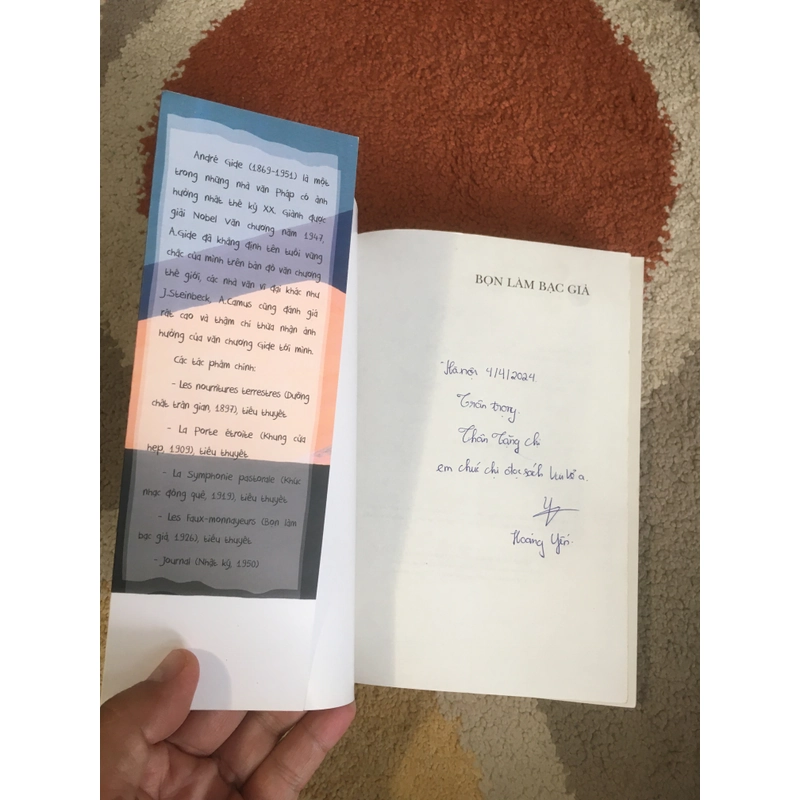 André Gide (1869-1951) là một
trong những nhà văn Pháp có ảnh
hưởng nhất thế kỷ XX. Giành được
giải Nobel Văn chương năm 1947,
A.Gide đã khẳng định tên tuổi vững
chắc của mình trên bản đồ văn chương
thế giới, các nhà văn vĩ đại khác như
J.Steinbeck, A.Camus cũng đánh giá
rất cao và thậm chí thừa nhận ảnh
hưởng của văn chương Gide tới mình.
Các tác phẩm chính:
- Les nourritures terrestres (Dưỡng
chất trần gian, 1897), tiểu thuyết
- La porte étroite (Khung cửa
hẹp, 1909), tiểu thuyết
- La Symphonie pastorale (Khúc
nhạc đồng quê, 1919), tiểu thuyết
- Les Faux-monnayeurs (Bọn làm
bạc giả, 1926), tiểu thuyết
- Journal (Nhật ký, 1950)
BỌN LÀM BẠC GIẢ
Hà nội 4/4/2024
Trân trọng
Thân Tặng chị
em chúc chị đọc sách vui vẻ ạ.
Hoàng Yến